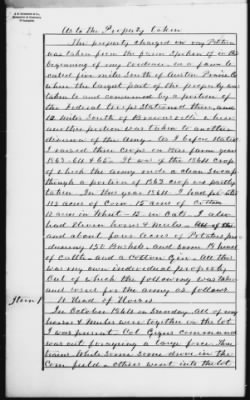 As to the Property taken
The property charged in my Petition
was taken from the farm spoken of in the
beginning of my evidence is a farm lo
cated five miles South of Austin Prairie Co
where the largest part of the property was
taken to and consumed by a portion of
the Federal troops Stationed there, and
12 miles South of Brownsville where
another portion was taken to another
division of the Army. As I before Stated
I raised three Crops on this farm year
1863. 64 & 65. It was of the 1864 crop
of which the army made a clean sweep
though a portion of 1863 crop was partly
taken. In this year 1864 I had for
acres of Corn - 15 acres of Cotton
12 acres in Wheat - 15 in Oats. I also
had Eleven horses & mules -
and about four acres of Potatoes pro-
ducing 150 Bushels. and some head
of Cattle - and a Cotton Gin. All this
was my own individual property
Out of which the following was taken
and used for the army as follows
Item 1 11 Head of Horses
In October 1864 on Sunday. All of my
horses & mules were together in the lot
I was present. Col Geiger command
was out foraging a large force. Thus
from While some drove in the
Corn field - others went into the lot